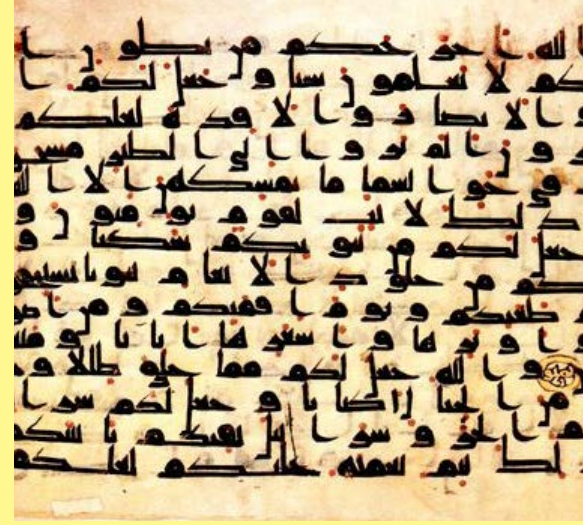 الله اخرجكم من بطون ا
تكم لا تعلمون شيا وجعل لكم ا
والابصار والافدة لعلكم
ون الم يروا الى الطير مسخر
في جو السما ما يمسكهن الا الله
ذلك لايت لقوم يومنون و
جعل لكم من بيوتكم سكنا و
لكم من جلود الانعام بيوتا تستخفو
ظعنكم ويوم اقامتكم ومن اصو
واوبرها واشعرها اثثا ومتعا
والله جعل لكم مما خلق ظللا و
من الجبال اكننا وجعل لكم سر
تقيكم الحر وسر بيل تقيكم باسكم
كذلك يتم نعمته عليكم لعلكم